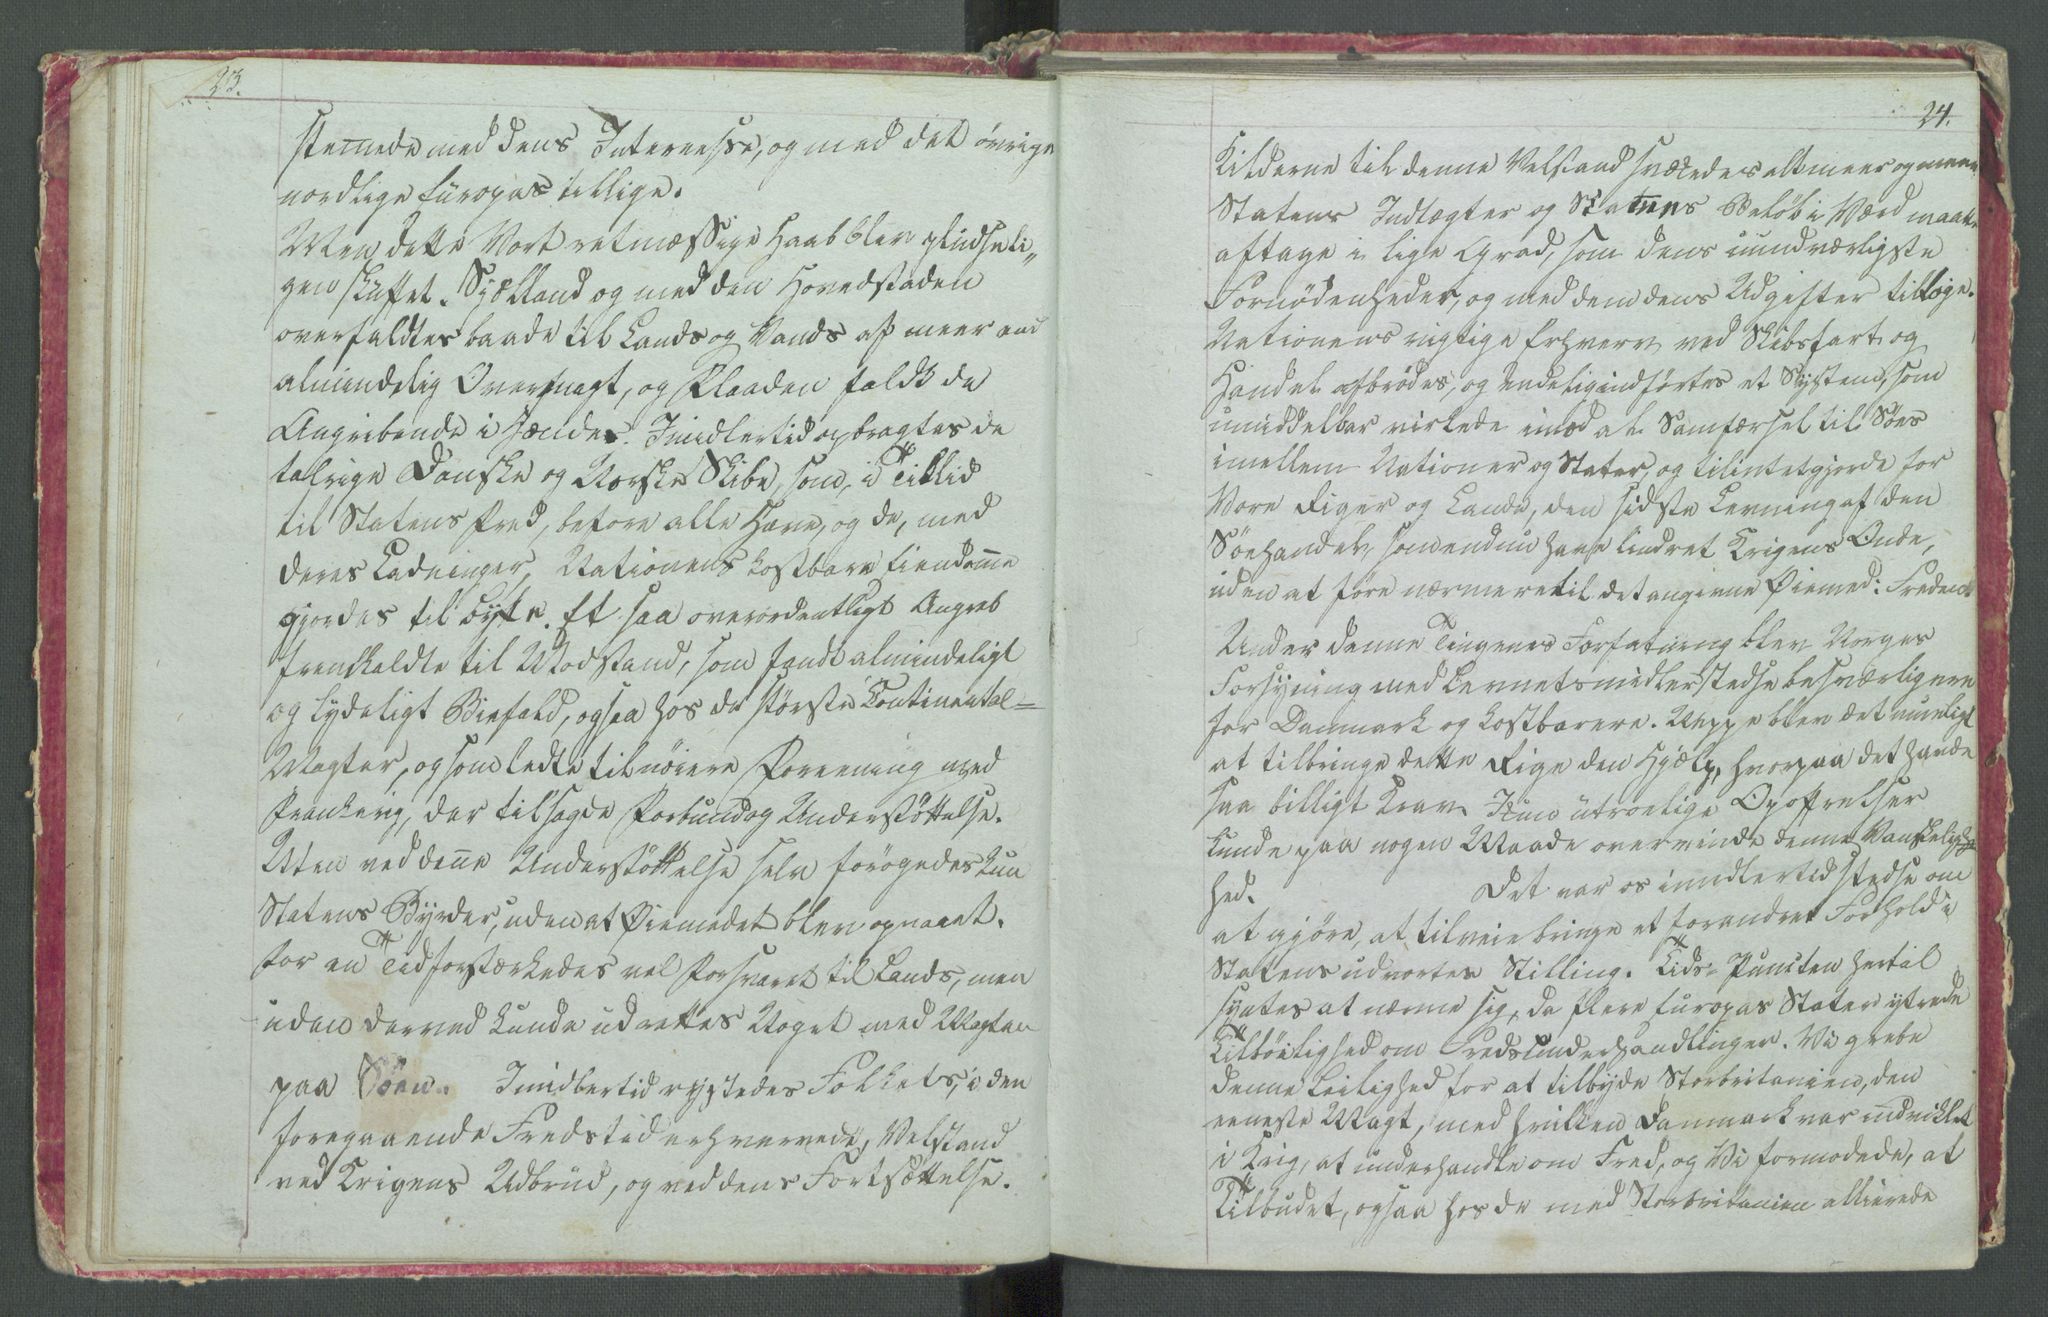 23.
stemede med dens Interesse, og med det övrige
nordlige Europas tillige.
Men dette Vort retmæssige Haab blev plüdseli„
gen skuffet. Sjælland og med den Hovedstaden
overfaldtes baade til Lands og Vands af meer end
almindelig Overmagt, og Flaaden faldt de
Angribende i Hænder. Imidlertid opbragtes de
talrige Danske og Norske Skibe, som, i Tillid
til Statens Fred, before alle Have, og de, med
deres Ladninger, Nationens kostbare Eiendomme
gjordes til Bytte. Et saa overordentligt Angreb
fremkaldte til Modstand, som fandt almindeligt
og lydeligt Biefald, ogsaa hos de störste Continental-
Magter, og som ledte til nöiere Forening med
Frankerig, der tilsagde Forbund og Understöttelse.
Men ved denne Understöttelse selv forögedes kun
Statens Byrder, uden at Øiemedet blev opnaaet.
For en Tid forstærkedes vel Forsvaret til Lands, men
uden derved kunde udrettes Noget med Magten
paa Söen. Imidlertid rystedes Folkets, i den
foregaaende Fredstid erhvervede, Velstand
ved Krigens Udbrud, og ved dens Fortsættelse.
24.
Kilderne til denne Velstand svækkedes alt meer og meer
Statens Indtægter og Statens Beløb i Værd maatte
aftage i lige Grad, som dens uundværligste
Fornödenheder, og med dem dens Udgifter tiltoge.
Nationens vigtige Erhverv ved Skibsfart og
Handel afbrödes, og endelig indförtes et System, som
umiddelbar virkede imod al Samfærsel til Söes
imellem Nationer og Stater, og tilintetgjorde for
Vore Riger og Lande, den sidste Levning af den
Söehandel, som endnu havde lindret Krigens Onde,
uden at före nærmere til det angivne Øiemed: Freden.
Under denne Tingenes Forfatning blev Norges
Forsyning med Levnetsmidler stedse besværligere
for Danmark og kostbarere. Neppe blev det mueligt
at tilbringe dette Rige den Hjælp, hvorpaa det havde
saa billigt Krav. Kun utroelige Opofrelser
kunde paa nogen Maade overvinde denne Vanskelig-
hed. Det var os imidlertid stedse om
at gjöre, at tilveiebringe et forandret Forhold i
Statens udvortes Stilling. Tids-Puncten hertil
syntes at nærme sig, da flere Europas Stater yttrede
Tilböielighed om Fredsunderhandlinger. Vi grebe
denne Leilighed for at tilbyde Storbritanien, den
eeneste Magt, med hvilken Danmark var indviklet
i Krig, at underhandle om Fred, og Vi formodede, at
Tilbudet, ogsaa hos de med Storbritanien allierede